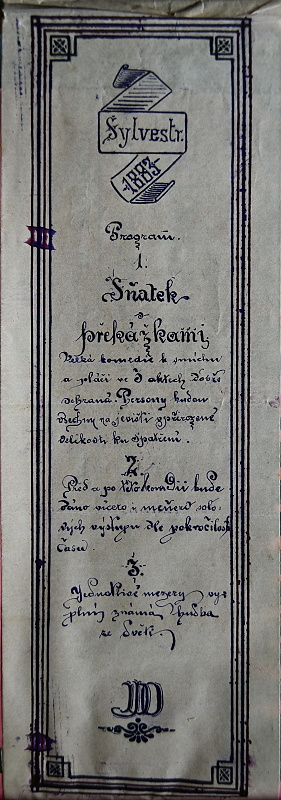 Sylvestr.
1883
Program.
1.
Sňatek
s
překážkami
Velká komedie k smíchu
a pláči ve 3 aktech dobře
sehraná. Persony budou
všechny na jevišti v přirozené
velikosti ku spatření.
2.
Před a po této komedii bude
dáno vícero i menších solo-
vých výstupů dle pokročilosti
času.
3.
Jednotlivé mezery vy-
plní známá hudba
ze Svěk.